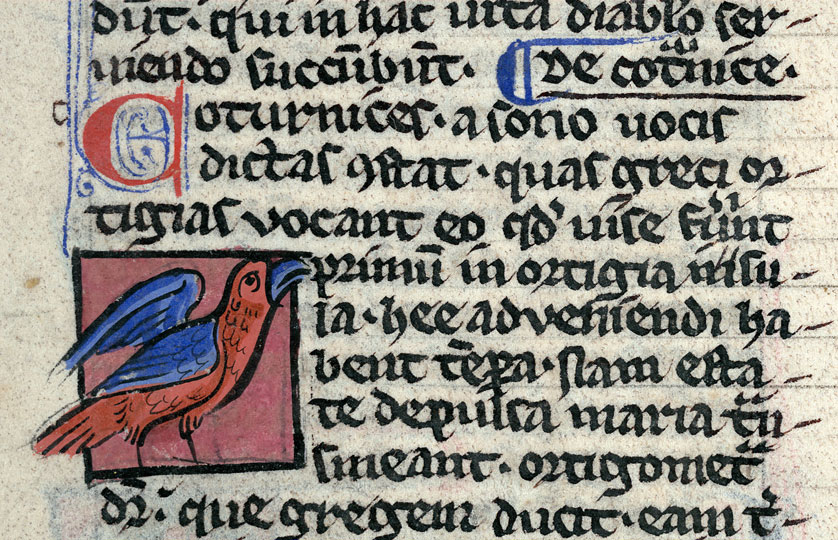 dūt· qui in hac uita diablo ser-
uiendo succūbūt· De cot̄nice·
Coturnices· a sono uocis
dictas ꝯstat· quas greci or-
tigias vocant eo qd' uise sunt
primū in ortigia insu-
la· hee adveniendi ha-
bent tēpa· nam esta-
te depulsa maria t̄n-
smeant· ortigomet̄
dr̄· que gregem ducit· eam t̄-